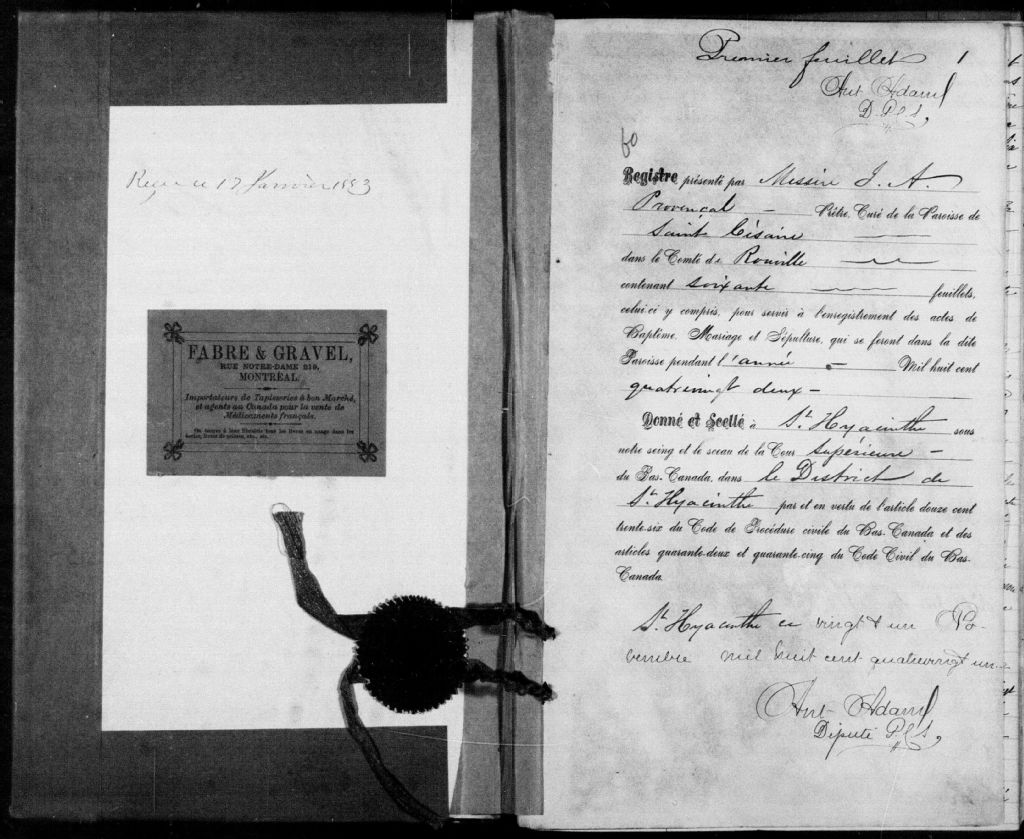 Reçu ce 17 Janvier 1883
FABRE & GRAVEL,
RUE NOTRE-DAME 219,
MONTRÉAL.
Importateurs de Tapisseries à bon Marché,
et agents au Canada pour la vente de
Médicaments français.
On trouve à leur librairie tous les livres en usage dans les
écoles, livres de prières, etc., etc.
Premier feuillet 1
Ant Adam
D. P. C. S,
60
Registre présenté par Messire J. A.
Provençal – Prêtre, Curé de la Paroisse de
Saint Césaire
dans le Comté de Rouville
contenant soixante feuillets,
celui-ci y compris, pour servir à l'enregistrement des actes de
Baptême, Mariage et Sépulture, qui se feront dans la dite
Paroisse pendant l'année – Mil huit cent
quatrevingt deux –
Donné et Scellé à St. Hyacinthe sous
notre seing et le sceau de la Cour Supérieure –
du Bas-Canada, dans le District de
St. Hyacinthe par et en vertu de l'article douze cent
trente-six du Code de Procédure civile du Bas-Canada et des
articles quarante-deux et quarante-cinq du Code Civil du Bas-
Canada.
St. Hyacinthe ce vingt & un No-
vembre mil huit cent quatrevingt un.–
Ant Adam
Député P. C. S,